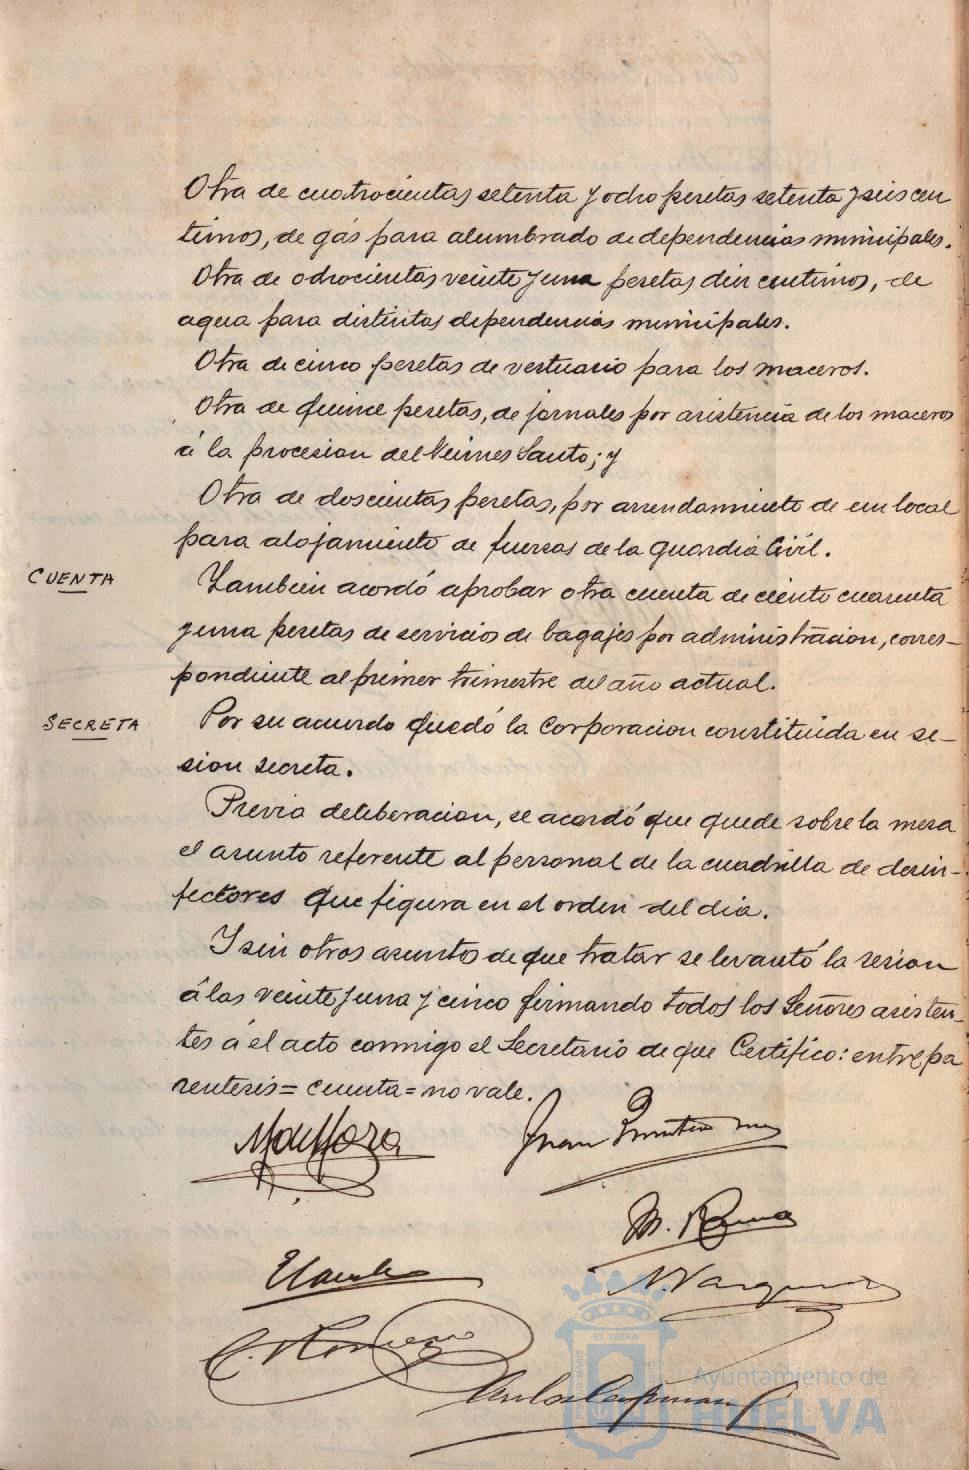 Otra de cuatrocientas setenta y ocho pesetas setenta y seis cen
timos, de gás para alumbrado de dependencias municipales.
Otra de ochocientas veinte y una pesetas diez centimos, de
agua para distintas dependencias municipales.
Otra de cinco pesetas de vestuario para los maceros.
Otra de quince pesetas, de jornales por asistencia de los maceros
á la procesion del Viernes Santo; y
Otra de doscientas pesetas, por arrendamiento de un local
para alojamiento de fuerzas de la guardia Civil.
CUENTA
Tambien acordó aprobar otra cuenta de ciento cuarenta
y una pesetas de servicios de bagajes por administracion, corres-
pondiente al primer trimestre del año actual.
SECRETA
Por su acuerdo quedó la Corporacion constituida en se-
sion secreta.
Previa deliberacion, se acordó que quede sobre la mesa
el asunto referente al personal de la cuadrilla de desin-
fectores que figura en el orden del dia.
Y sin otros asuntos de que tratar se levantó la sesion
á las veinte y una y cinco firmando todos los Señores asisten-
tes á el acto conmigo el Secretario de que Certifico: entre pa
rentesis = cuenta = no vale.
Juan Quintero
M.
N. Vazquez
C. Romero
Carlos
ET TERRA
Ayuntamiento de
HUELVA